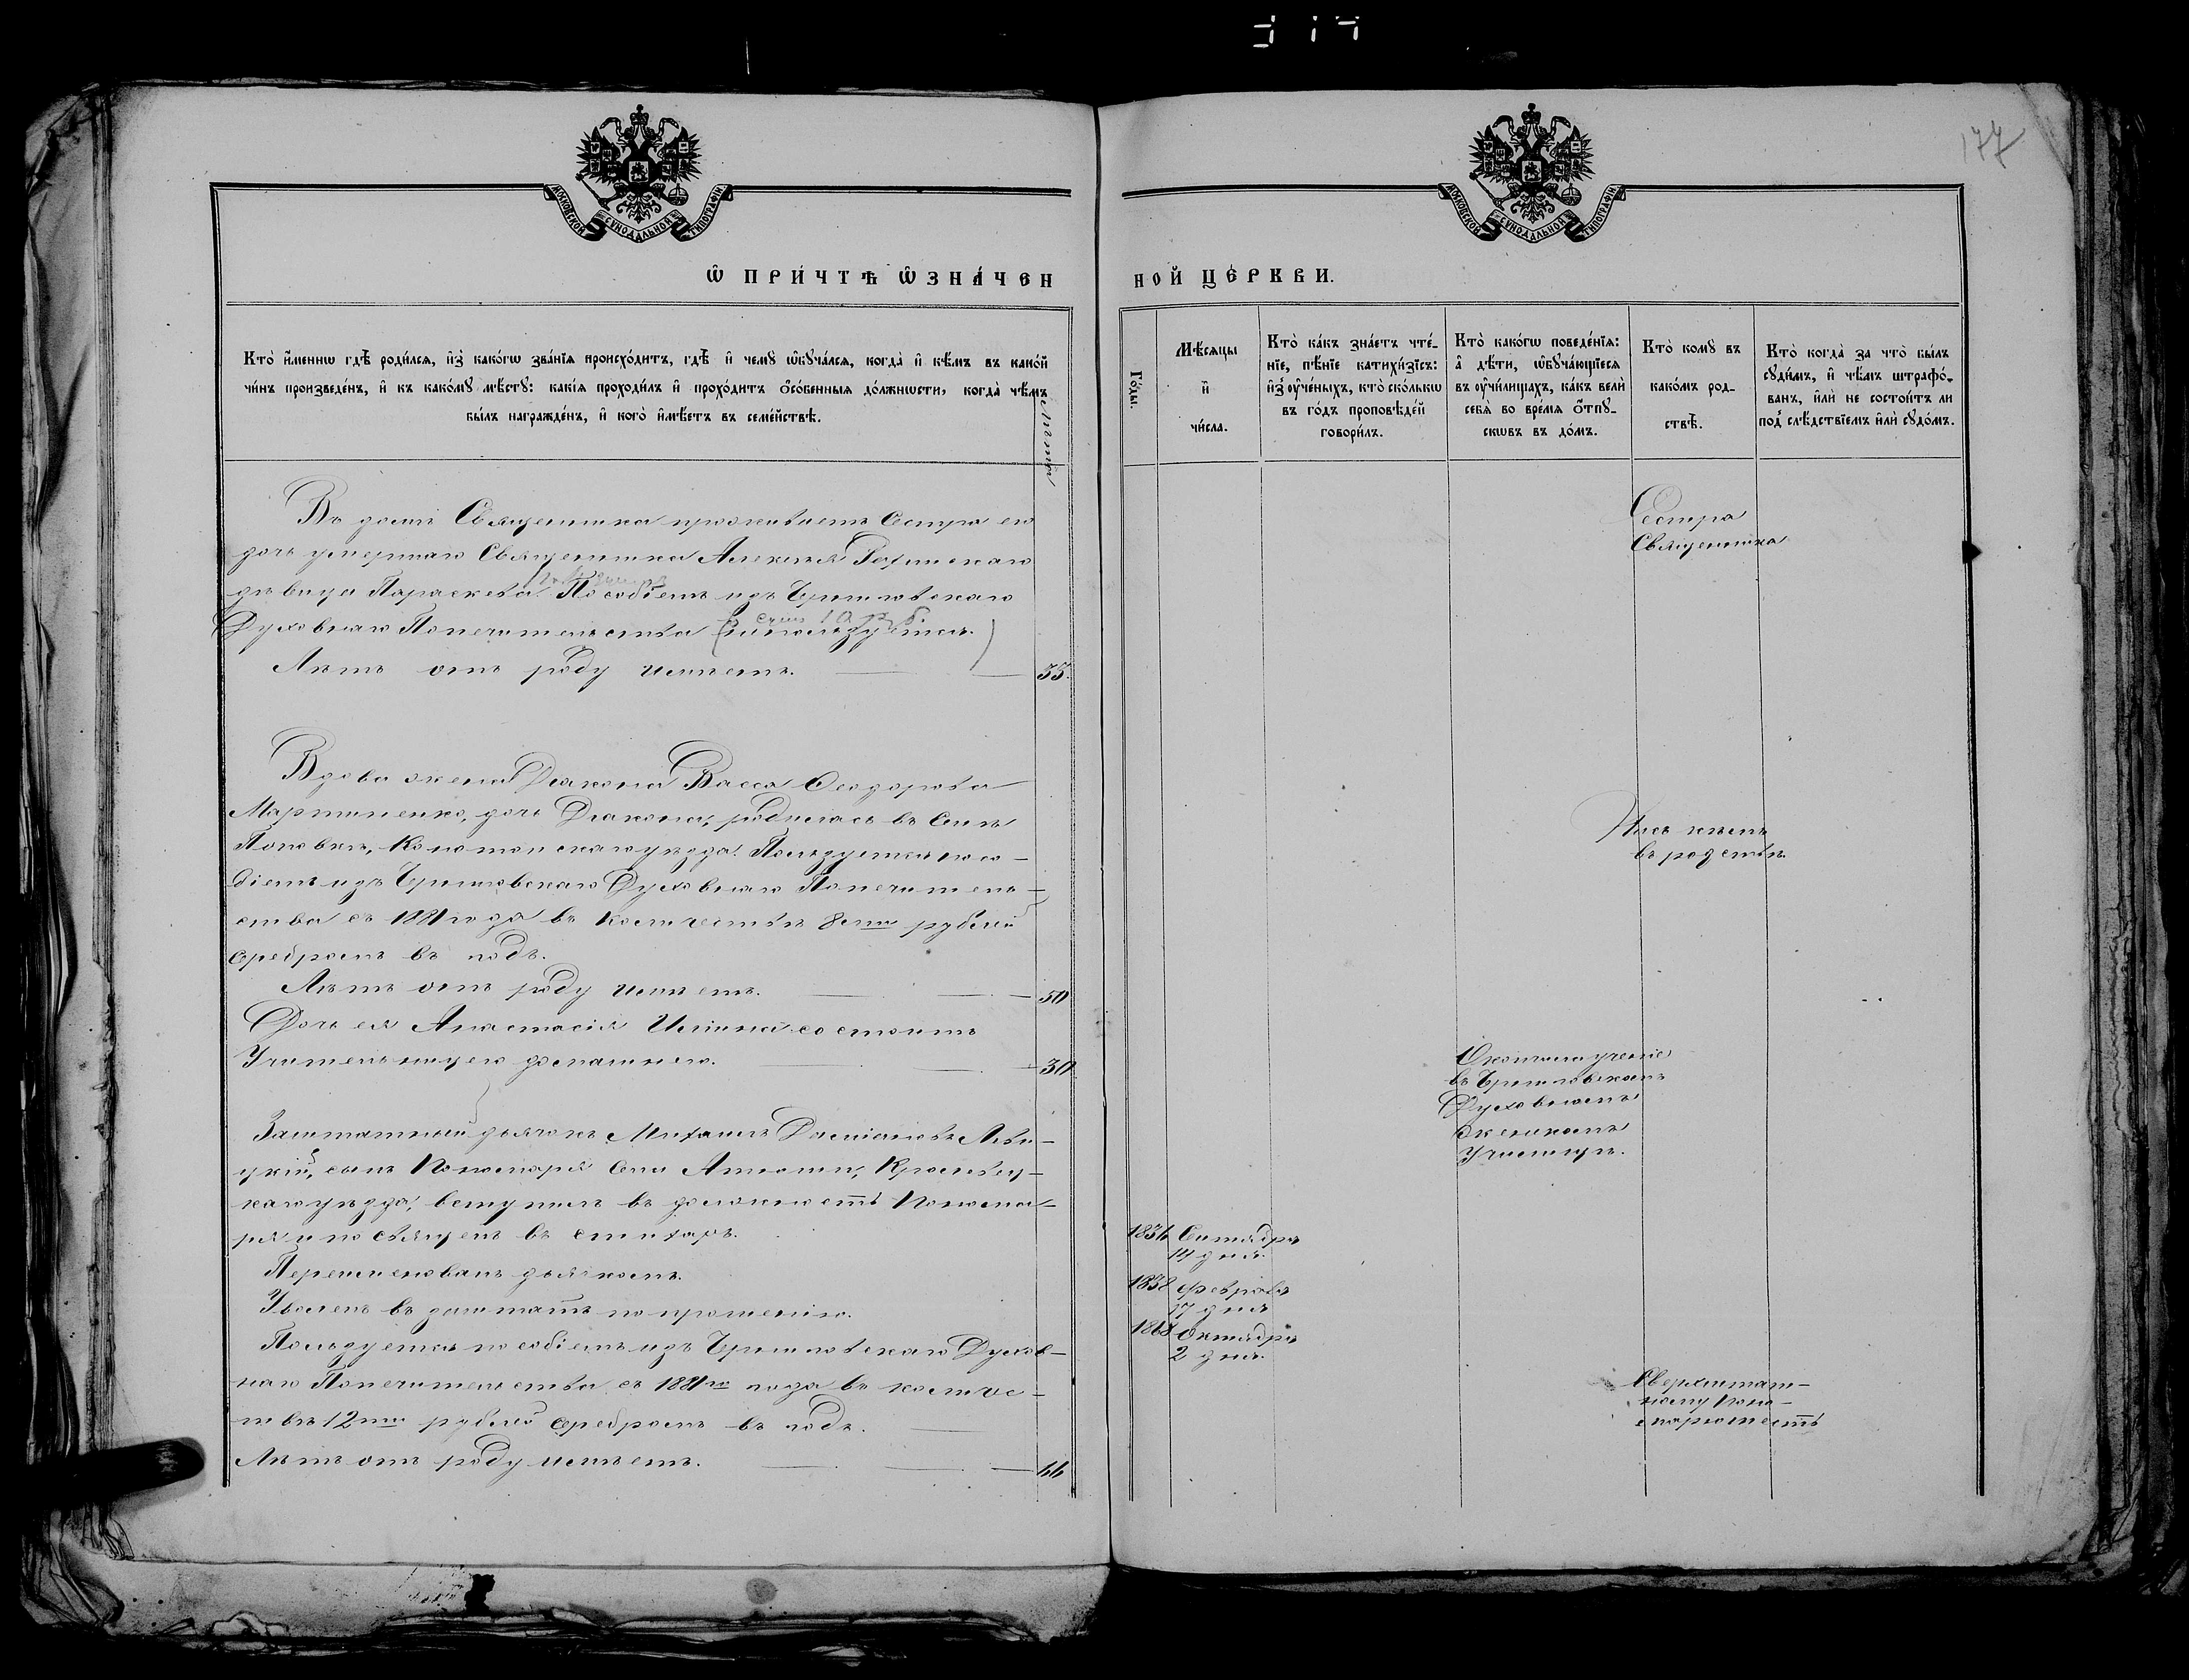 177
МОСКОВСКОЙ СУНОДАЛЬНОЙ ТИПОГРАФІИ
МОСКОВСКОЙ СУНОДАЛЬНОЙ ТИПОГРАФІИ
Ѽ ПРИ́ЧТѢ ѼЗНА́ЧЕН
НОЙ ЦЕ́РКВИ.
Кто̀ и҆́менно гдѣ̀ роди́лся, и҆з̾ како́гѡ зва́нїѧ происхо́дитъ, гдѣ̀ и҆ чемꙋ̀ ѡ҆бꙋча́лся, когда̀ и҆ кѣ́мъ въ како́й
чи́нъ произведе́нъ, и҆ къ како́мꙋ мѣ́стꙋ: какі́ѧ проходи́лъ и҆ прохо́дитъ ѻ҆со́бенныѧ до́лжнѡсти, когда̀ чѣ́мъ
бы́лъ награжде́нъ, и҆ кого̀ и҆мѣ́етъ въ семе́йствѣ.
Лѣта
Го́ды.
Мѣ́сяцы
и҆
чи́сла.
Кто̀ ка́къ зна́етъ чте́-
нїе, пѣ́нїе катихи́зїсъ:
и҆з̾ ᲂу҆че́ныхъ, кто̀ ско́лькѡ
въ го́дъ проповѣ́дей
говори́лъ.
Кто̀ како́гѡ поведе́нїѧ:
а҆ дѣ́ти, ѡ҆бꙋча́ющїесѧ
въ ᲂу҆чи́лищахъ, ка́къ велѝ
себѧ̀ во вре́мѧ ѿпꙋ-
сковъ въ до́мъ.
Кто̀ комꙋ̀ въ
како́мъ род-
ствѣ̀.
Кто̀ когда̀ за что̀ бы́лъ
сꙋди́мъ, и҆ чѣ́мъ штрафо́-
ванъ, и҆лѝ не состои́тъ ли
под̾ слѣ́дствїемъ и҆лѝ сꙋдо́мъ.
Въ домѣ Священника проживаетъ Сестра его
дочь умершаго Священника Алексѣя
дѣвица Параскева. Пособіемъ изъ Черниговскаго
Духовнаго Попечительства (непользуется.)
Лѣтъ отъ роду имѣетъ. 55.
Сестра
Священника
Вдова жена Діакона Васса Ѳеодорова
Мартиненко, дочь Діакона, родилась въ Селѣ
Поповкѣ, Конотопскаго уѣзда. Пользуется посо-
біемъ изъ Черниговскаго Духовнаго Попечитель-
ства съ 1881 года въ количествѣ 8ми рублей
серебромъ въ годъ.
Лѣтъ отъ роду имѣетъ. 50
Ни съ кѣмъ
въ родствѣ.
Дочь ея Анастасія Иліина состоитъ
Учительницею домашнею. 30
Окончила ученіе
въ Черниговскомъ
Духовномъ
Женскомъ
Училищѣ.
Заштатный дьячокъ Михаилъ Даміановъ Леви-
цкій, сынъ Пономаря Села Кролевец-
каго уѣзда, вступилъ въ должность Понома-
ря и посвященъ въ стихарь.
1836 Сентября
14 дня.
Переименованъ дьячкомъ.
1838 Февраля
17 дня
Уволенъ въ заштатъ по прошенію.
1868 Октября
2 дня.
Пользуется пособіемъ изъ Черниговскаго Духов-
наго Попечительства съ 1881го года въ количес-
твѣ 12ти рублей серебромъ въ годъ.
Лѣтъ отъ роду имѣетъ. 66
Сверхштат-
ному Поно-